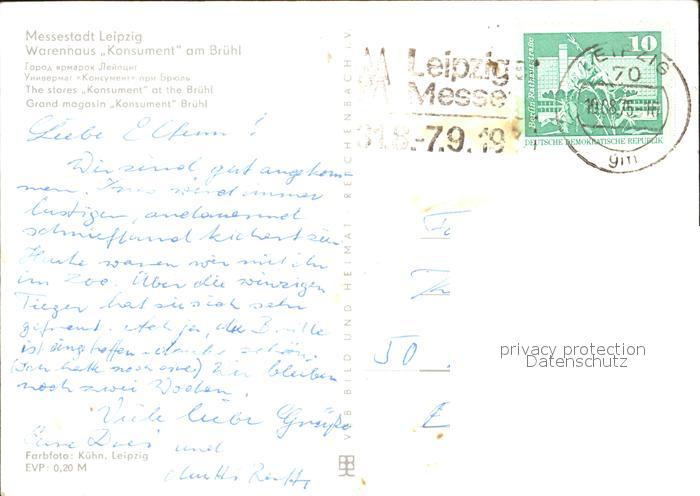 Messestadt Leipzig
Warenhaus „Konsument" am Brühl
Город ярмарок Лейпциг
Универмаг «Консумент» при Брюль
The stores „Konsument" at the Brühl
Grand magasin „Konsument" Brühl
Leipzig
Messe
31.8.-7.9.19
10
Berlin, Rathausstraße
DEUTSCHE DEMOKRATISCHE REPUBLIK
LEIPZIG
70
gm
Liebe Eltern!
Wir sind gut angekom-
men. Ines wird immer
lustiger, andauernd
schnieft und kichert sie.
Heute waren wir mit ihr
im Zoo. Über die winzigen
Tieger hat sie sich sehr
gefreut. Ach ja, die Brille
ist eingtroffen - danke schön.
(Ich hatte noch zwei) Wir bleiben
noch zwei Wochen.
Viele liebe Grüße
Eure Drei
und
Farbfoto: Kühn, Leipzig
EVP: 0,20 M
VEB BILD UND HEIMAT REICHENBACH i. V.
50
privacy protection
Datenschutz